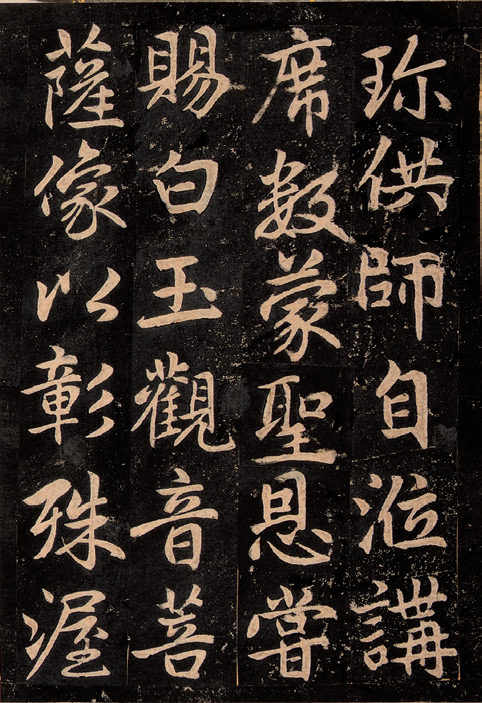 珎供師自涖講
席數蒙聖恩嘗
賜白玉觀音菩
薩像以彰殊渥